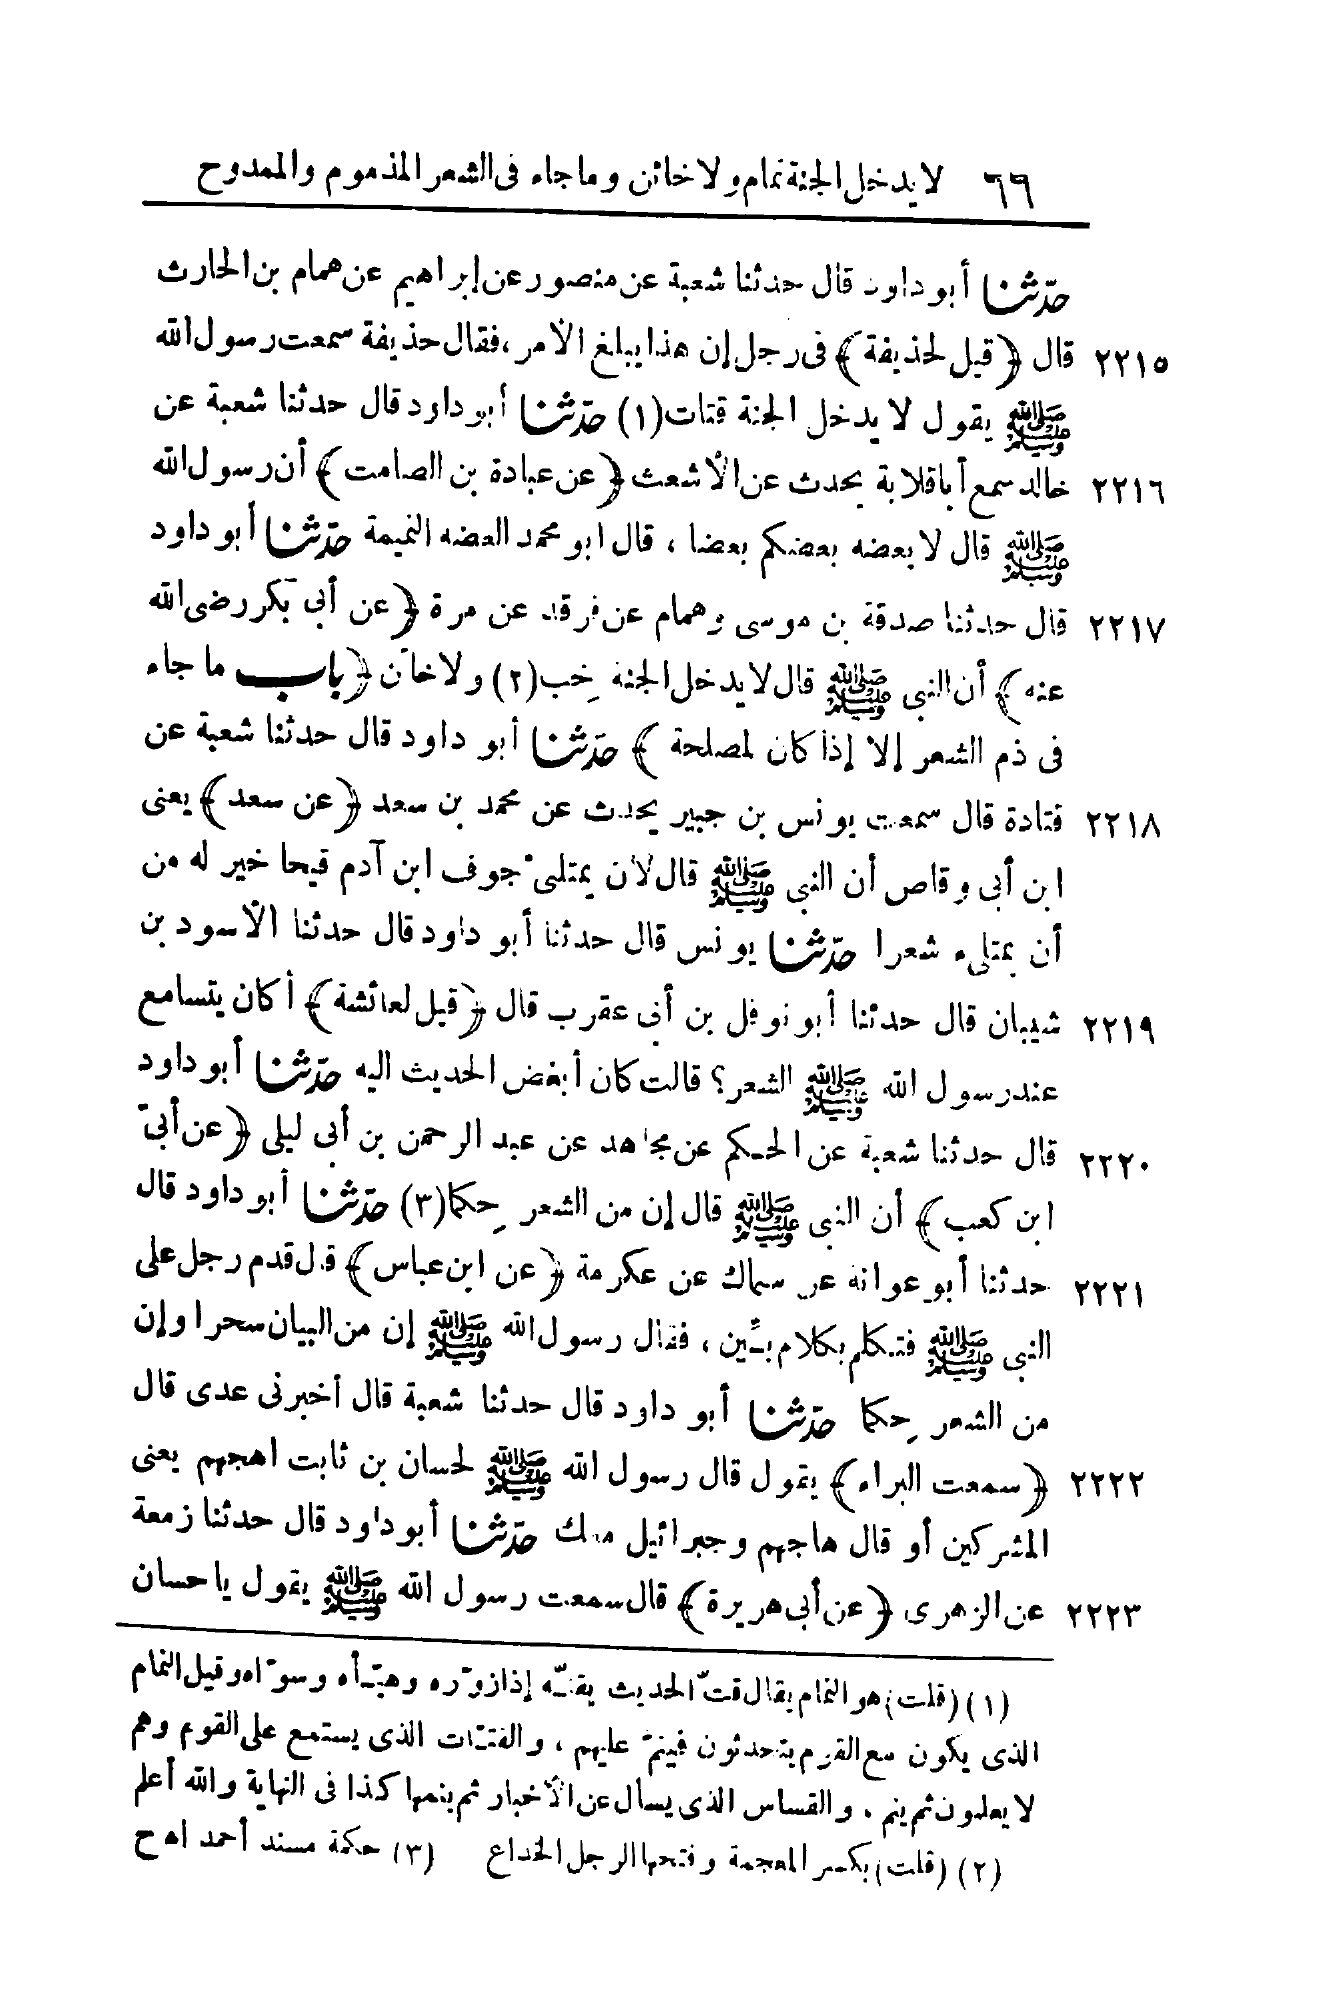 ٦٦ لا يدخل الجنة نمام ولا خائن وما جاء فى الشعر المذموم والممدوح
حدّثنا أبو داود قال حدثنا شعبة عن منصور عن إبراهيم عن همام بن الحارث
٢٢١٥ قال ﴿ قيل لحذيفة ﴾ فى رجل إن هذا يبلغ الأمر ، فقال حذيفة سمعت رسول الله
ﷺ يقول لا يدخل الجنة قتات (١) حدّثنا أبو داود قال حدثنا شعبة عن
٢٢١٦ خالد سمع أبا قلابة يحدث عن الأشعث ﴿ عن عبادة بن الصامت ﴾ أن رسول الله
ﷺ قال لا يعضه بعضكم بعضا ، قال ابو محمد العضه النميمة حدّثنا أبو داود
٢٢١٧ قال حدثنا صدقة بن موسى وهمام عن فرقد عن مرة ﴿ عن أبى بكر رضى الله
عنه ﴾ أن النبى ﷺ قال لا يدخل الجنة خِب (٢) ولا خائن ﴿ باب ما جاء
فى ذم الشعر إلا إذا كان لمصلحة ﴾ حدّثنا أبو داود قال حدثنا شعبة عن
٢٢١٨ قتادة قال سمعت يونس بن جبير يحدث عن محمد بن سعد ﴿ عن سعد ﴾ يعنى
ابن أبى وقاص أن النبى ﷺ قال لأن يمتلىء جوف ابن آدم قيحا خير له من
أن يمتلىء شعرا حدّثنا يونس قال حدثنا أبو داود قال حدثنا الأسود بن
٢٢١٩ شيبان قال حدثنا أبو نوفل بن أبى عقرب قال ﴿ قيل لعائشة ﴾ أكان يتسامع
عند رسول الله ﷺ الشعر؟ قالت كان أبغض الحديث اليه حدّثنا أبو داود
٢٢٢٠ قال حدثنا شعبة عن الحكم عن مجاهد عن عبد الرحمن بن أبى ليلى ﴿ عن أبىّ
ابن كعب ﴾ أن النبى ﷺ قال إن من الشعر حِكما (٣) حدّثنا أبو داود قال
٢٢٢١ حدثنا أبو عوانة عن سماك عن عكرمة ﴿ عن ابن عباس ﴾ قال قدم رجل على
النبى ﷺ فتكلم بكلام بيِّن ، فقال رسول الله ﷺ إن من البيان سحرا وإن
من الشعر حِكما حدّثنا أبو داود قال حدثنا شعبة قال أخبرنى عدى قال
٢٢٢٢ ﴿ سمعت البراء ﴾ يقول قال رسول الله ﷺ لحسان بن ثابت اهجهم يعنى
المشركين أو قال هاجهم وجبرائيل معك حدّثنا أبو داود قال حدثنا زمعة
٢٢٢٣ عن الزهرى ﴿ عن أبى هريرة ﴾ قال سمعت رسول الله ﷺ يقول يا حسان
(١) (قلت) هو النمام يقال قتّ الحديث يقتّه إذا زوّره وهيّأه وسوّاه وقيل النمام
الذى يكون مع القوم يتحدثون فينمّ عليهم ، والقتّات الذى يستمع على القوم وهم
لا يعلمون ثم ينم ، والقساس الذى يسأل عن الأخبار ثم ينمها كذا فى النهاية والله أعلم
(٢) (قلت) بكسر المعجمة وفتحها الرجل الخداع (٣) حكمة مسند أحمد اه ح